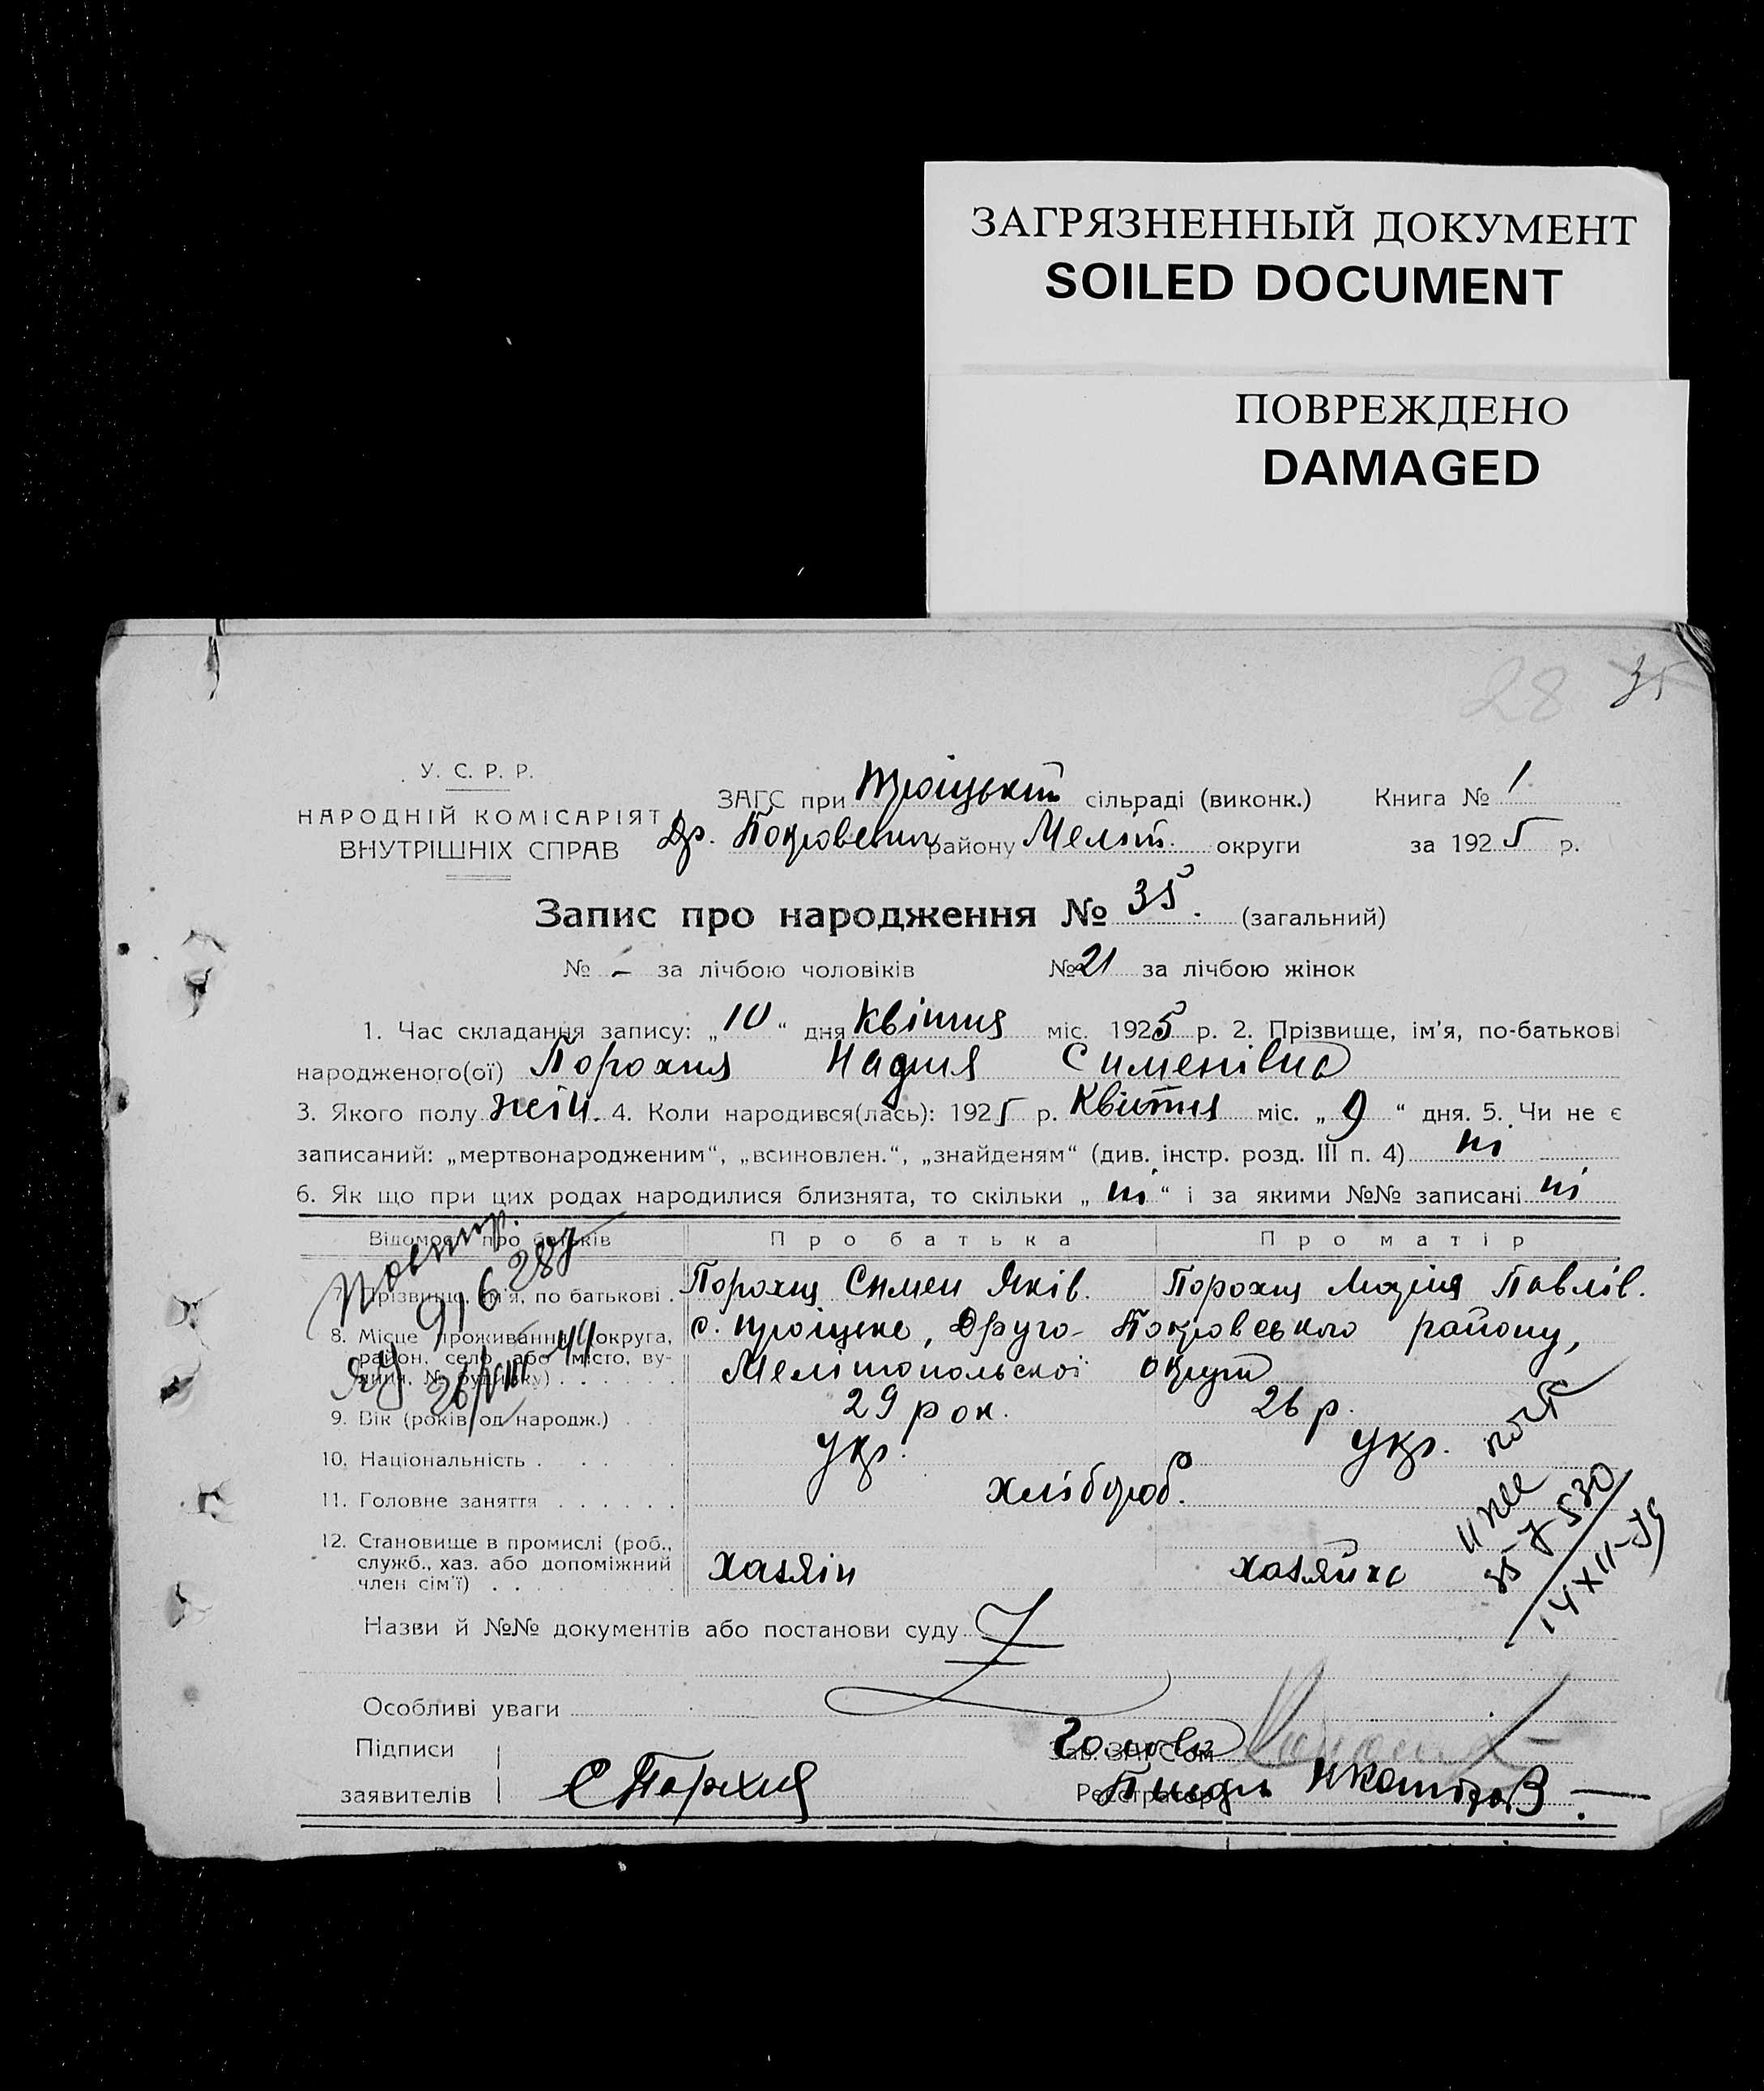 ЗАГРЯЗНЕННЫЙ ДОКУМЕНТ
SOILED DOCUMENT
ПОВРЕЖДЕНО
DAMAGED
28 35
У. С. Р. Р.
НАРОДНІЙ КОМІСАРІЯТ
ВНУТРІШНІХ СПРАВ
ЗАГС при Троіцькій сільраді (виконк.) Книга № 1
Др. Покровськ району Меліт. округи за 1925 р.
Запис про народження № 35. (загальний)
№ - за лічбою чоловіків № 21 за лічбою жінок
1. Час складання запису: „10“ дня квітня міс. 1925 р. 2. Прізвище, ім'я, по-батькові
народженого(ої) Порохня Надия Сименівна
3. Якого полу жін. 4. Коли народився(лась): 1925 р. Квітня міс. „9“ дня. 5. Чи не є
записаний: „мертвонародженим“, „всиновлен.“, „знайденям“ (див. інстр. розд. III п. 4) ні
6. Як що при цих родах народилися близнята, то скільки „ні“ і за якими №№ записані ні
Відомості про батьків Про батька Про матір
7. Прізвище, ім'я, по батькові . Порохня Симен Яків. Порохня Марія Павлів.
8. Місце проживання (округа, район, село або місто, вулиця, № будинку) с. Троіцьке, Друго-Покровського району,
Мелітопольскоі округи
9. Вік (років од народж.) 29 рок. 26 р.
10. Національність . укр. укр.
11. Головне заняття хлібороб.
12. Становище в промислі (роб.,
служб., хаз. або допоміжний
член сім'ї) . . хазяін хазяйка
Повтор.
26/VIII-44
14 XII-79
Назви й №№ документів або постанови суду
Особливі уваги
Підписи
заявителів С Порхня
Зав. ЗАГС'ом Голова
Реєстратор